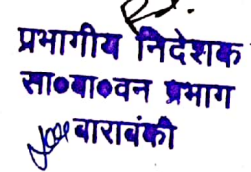 प्रभागीय निदेशक
सा०बा०वन प्रभाग
बाराबंकी